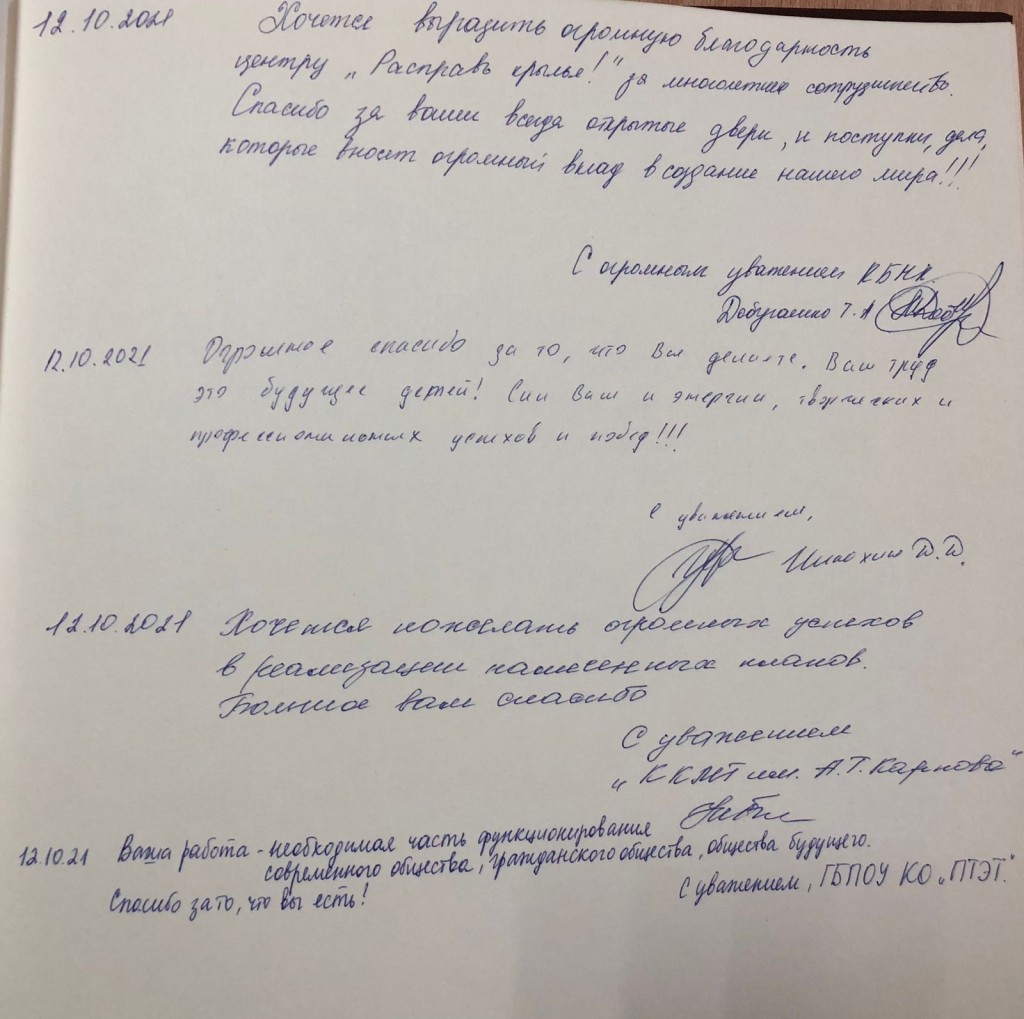 12.10.2021 Хочется выразить огромную благодарность
центру „Расправь крылья!" за многолетнее сотрудничество.
Спасибо за ваши всегда открытые двери, и поступки, дела,
которые вносят огромный вклад в создание нашего мира!!!
С огромным уважением КБНК.
Т.А
12.10.2021 Огромное спасибо за то, что Вы делаете. Ваш труд
это будущее детей! Сил Вам и энергии, творческих и
профессиональных успехов и побед!!!
С уважением,
Д.Д.
12.10.2021 Хочется пожелать огромных успехов
в реализации намеченных планов.
Большое вам спасибо
С уважением
„ККМТ им. А.Т. Карпова"
12.10.21 Ваша работа - необходимая часть функционирования
современного общества, гражданского общества, общества будущего.
Спасибо за то, что вы есть!
С уважением, ГБПОУ КО „ПТЭТ".